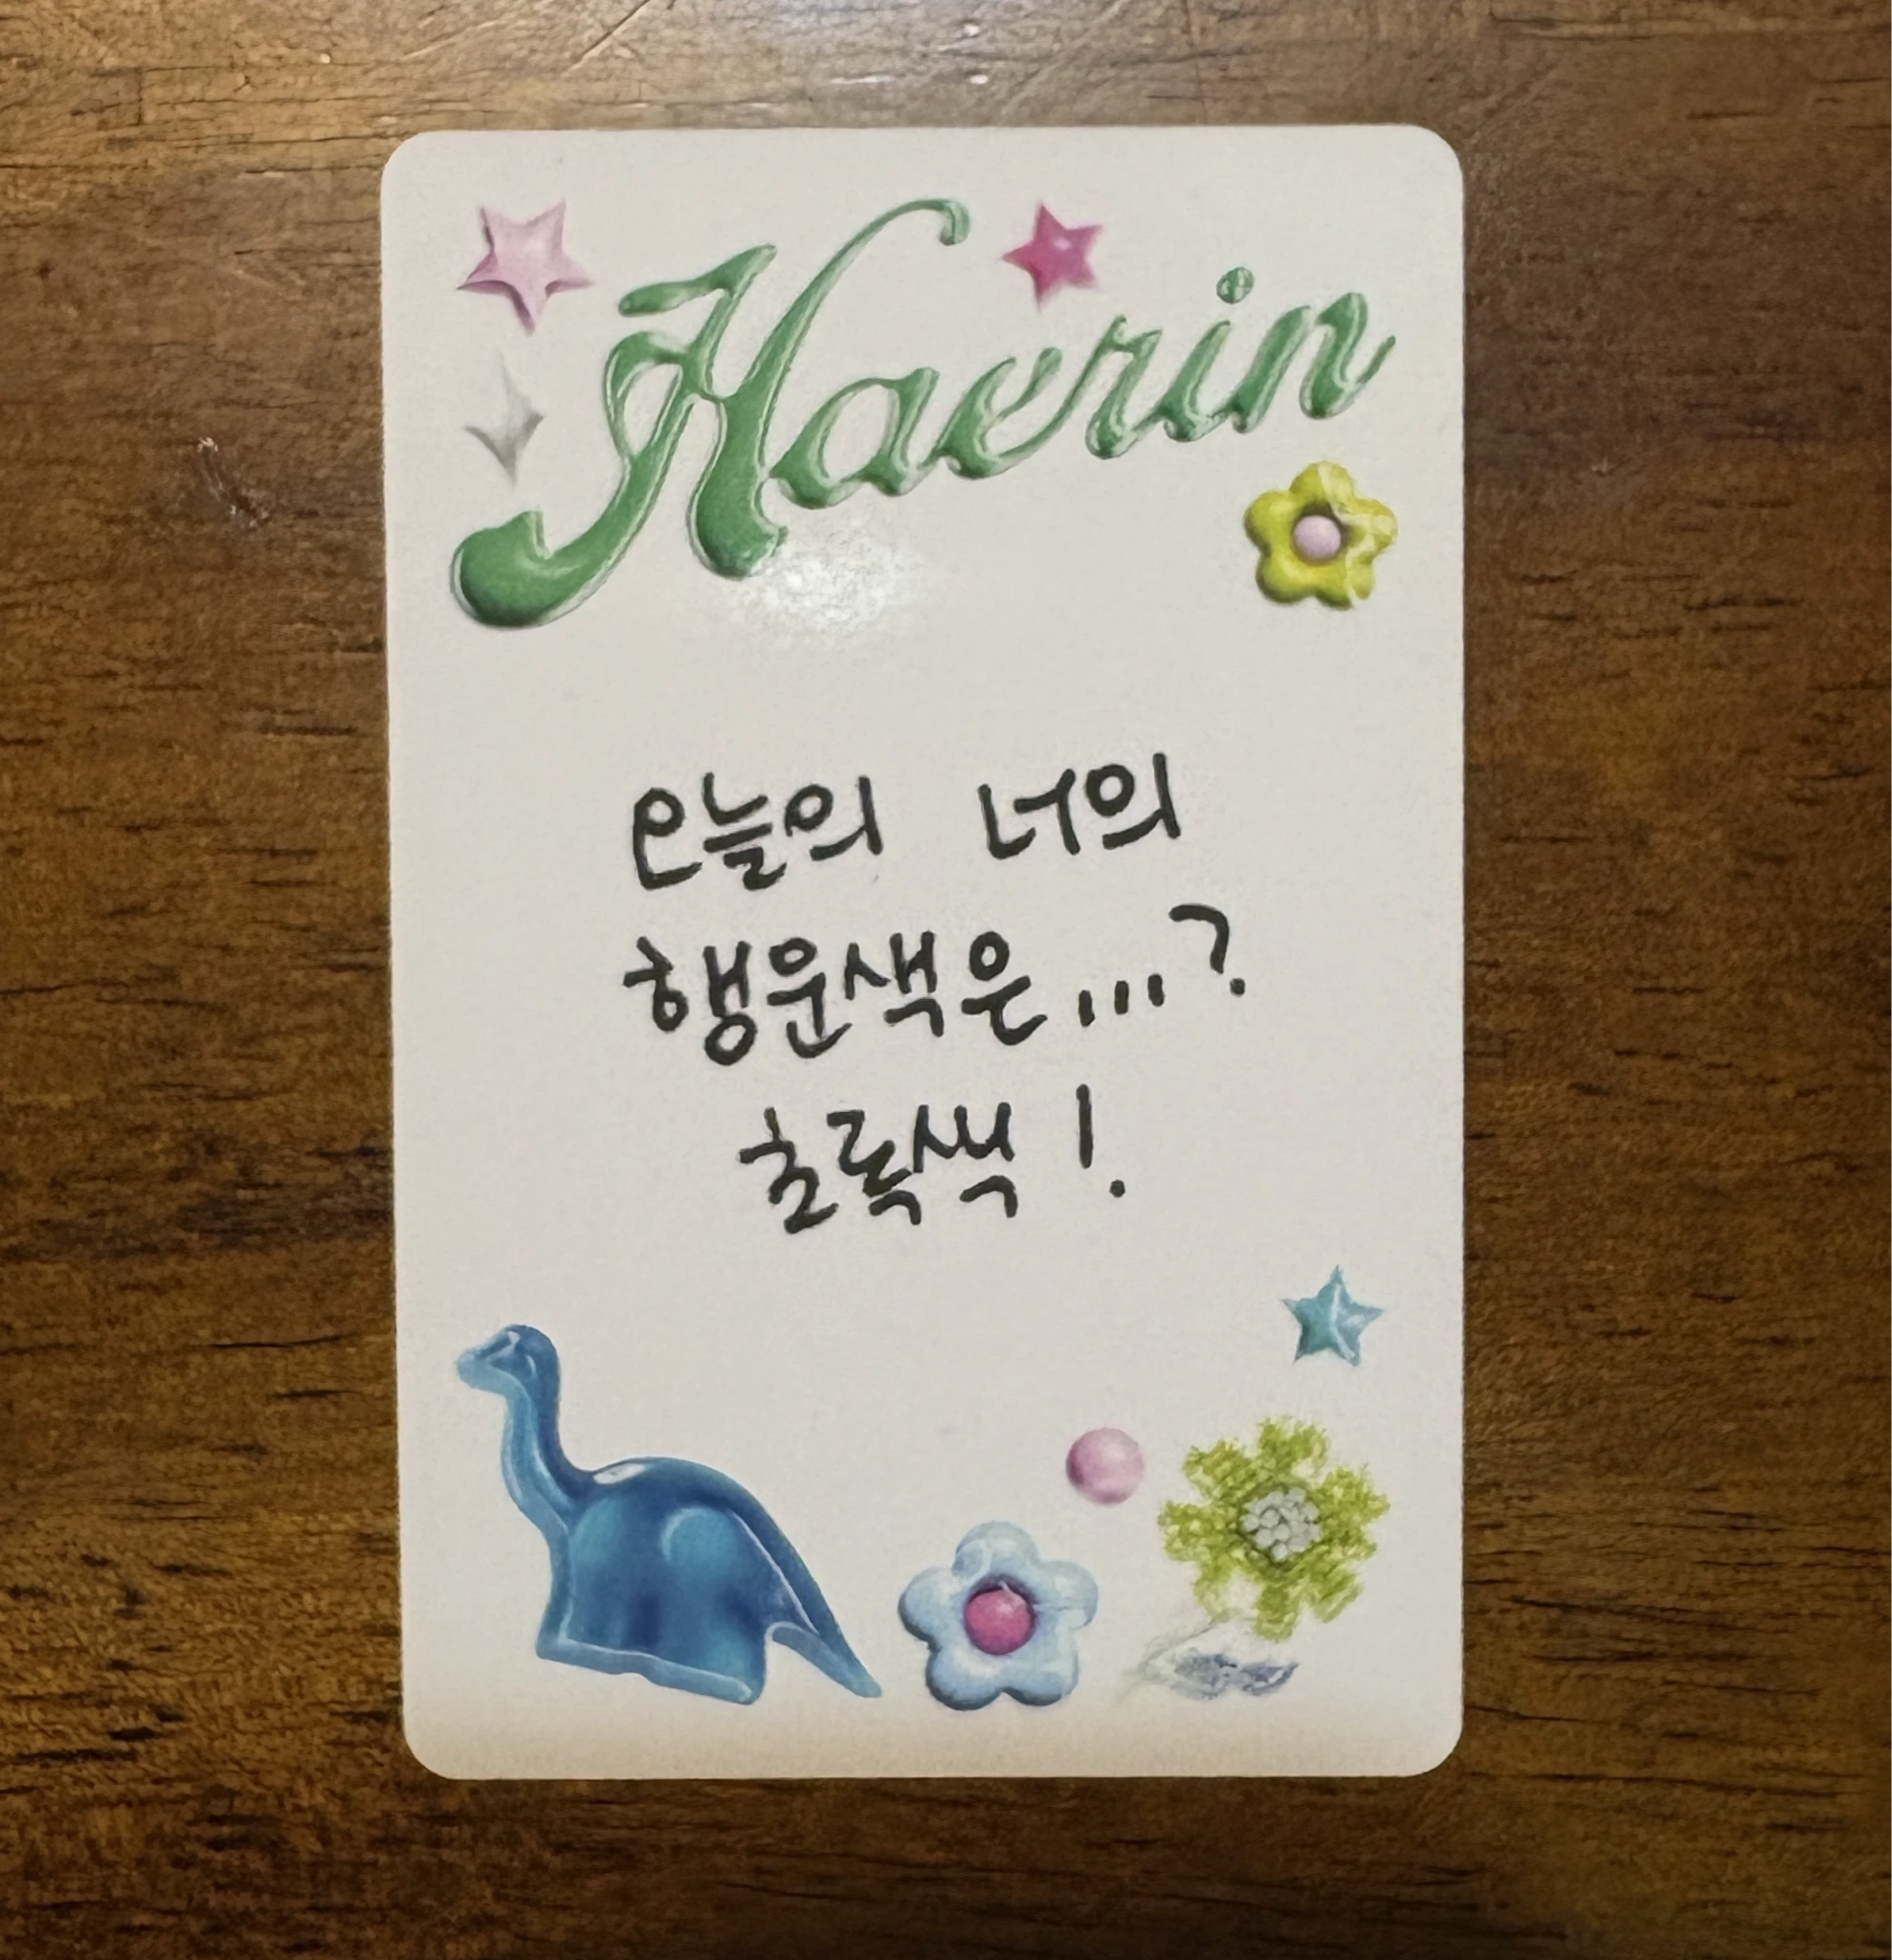 Haerin
오늘의 너의
행운색은...?
초록색!